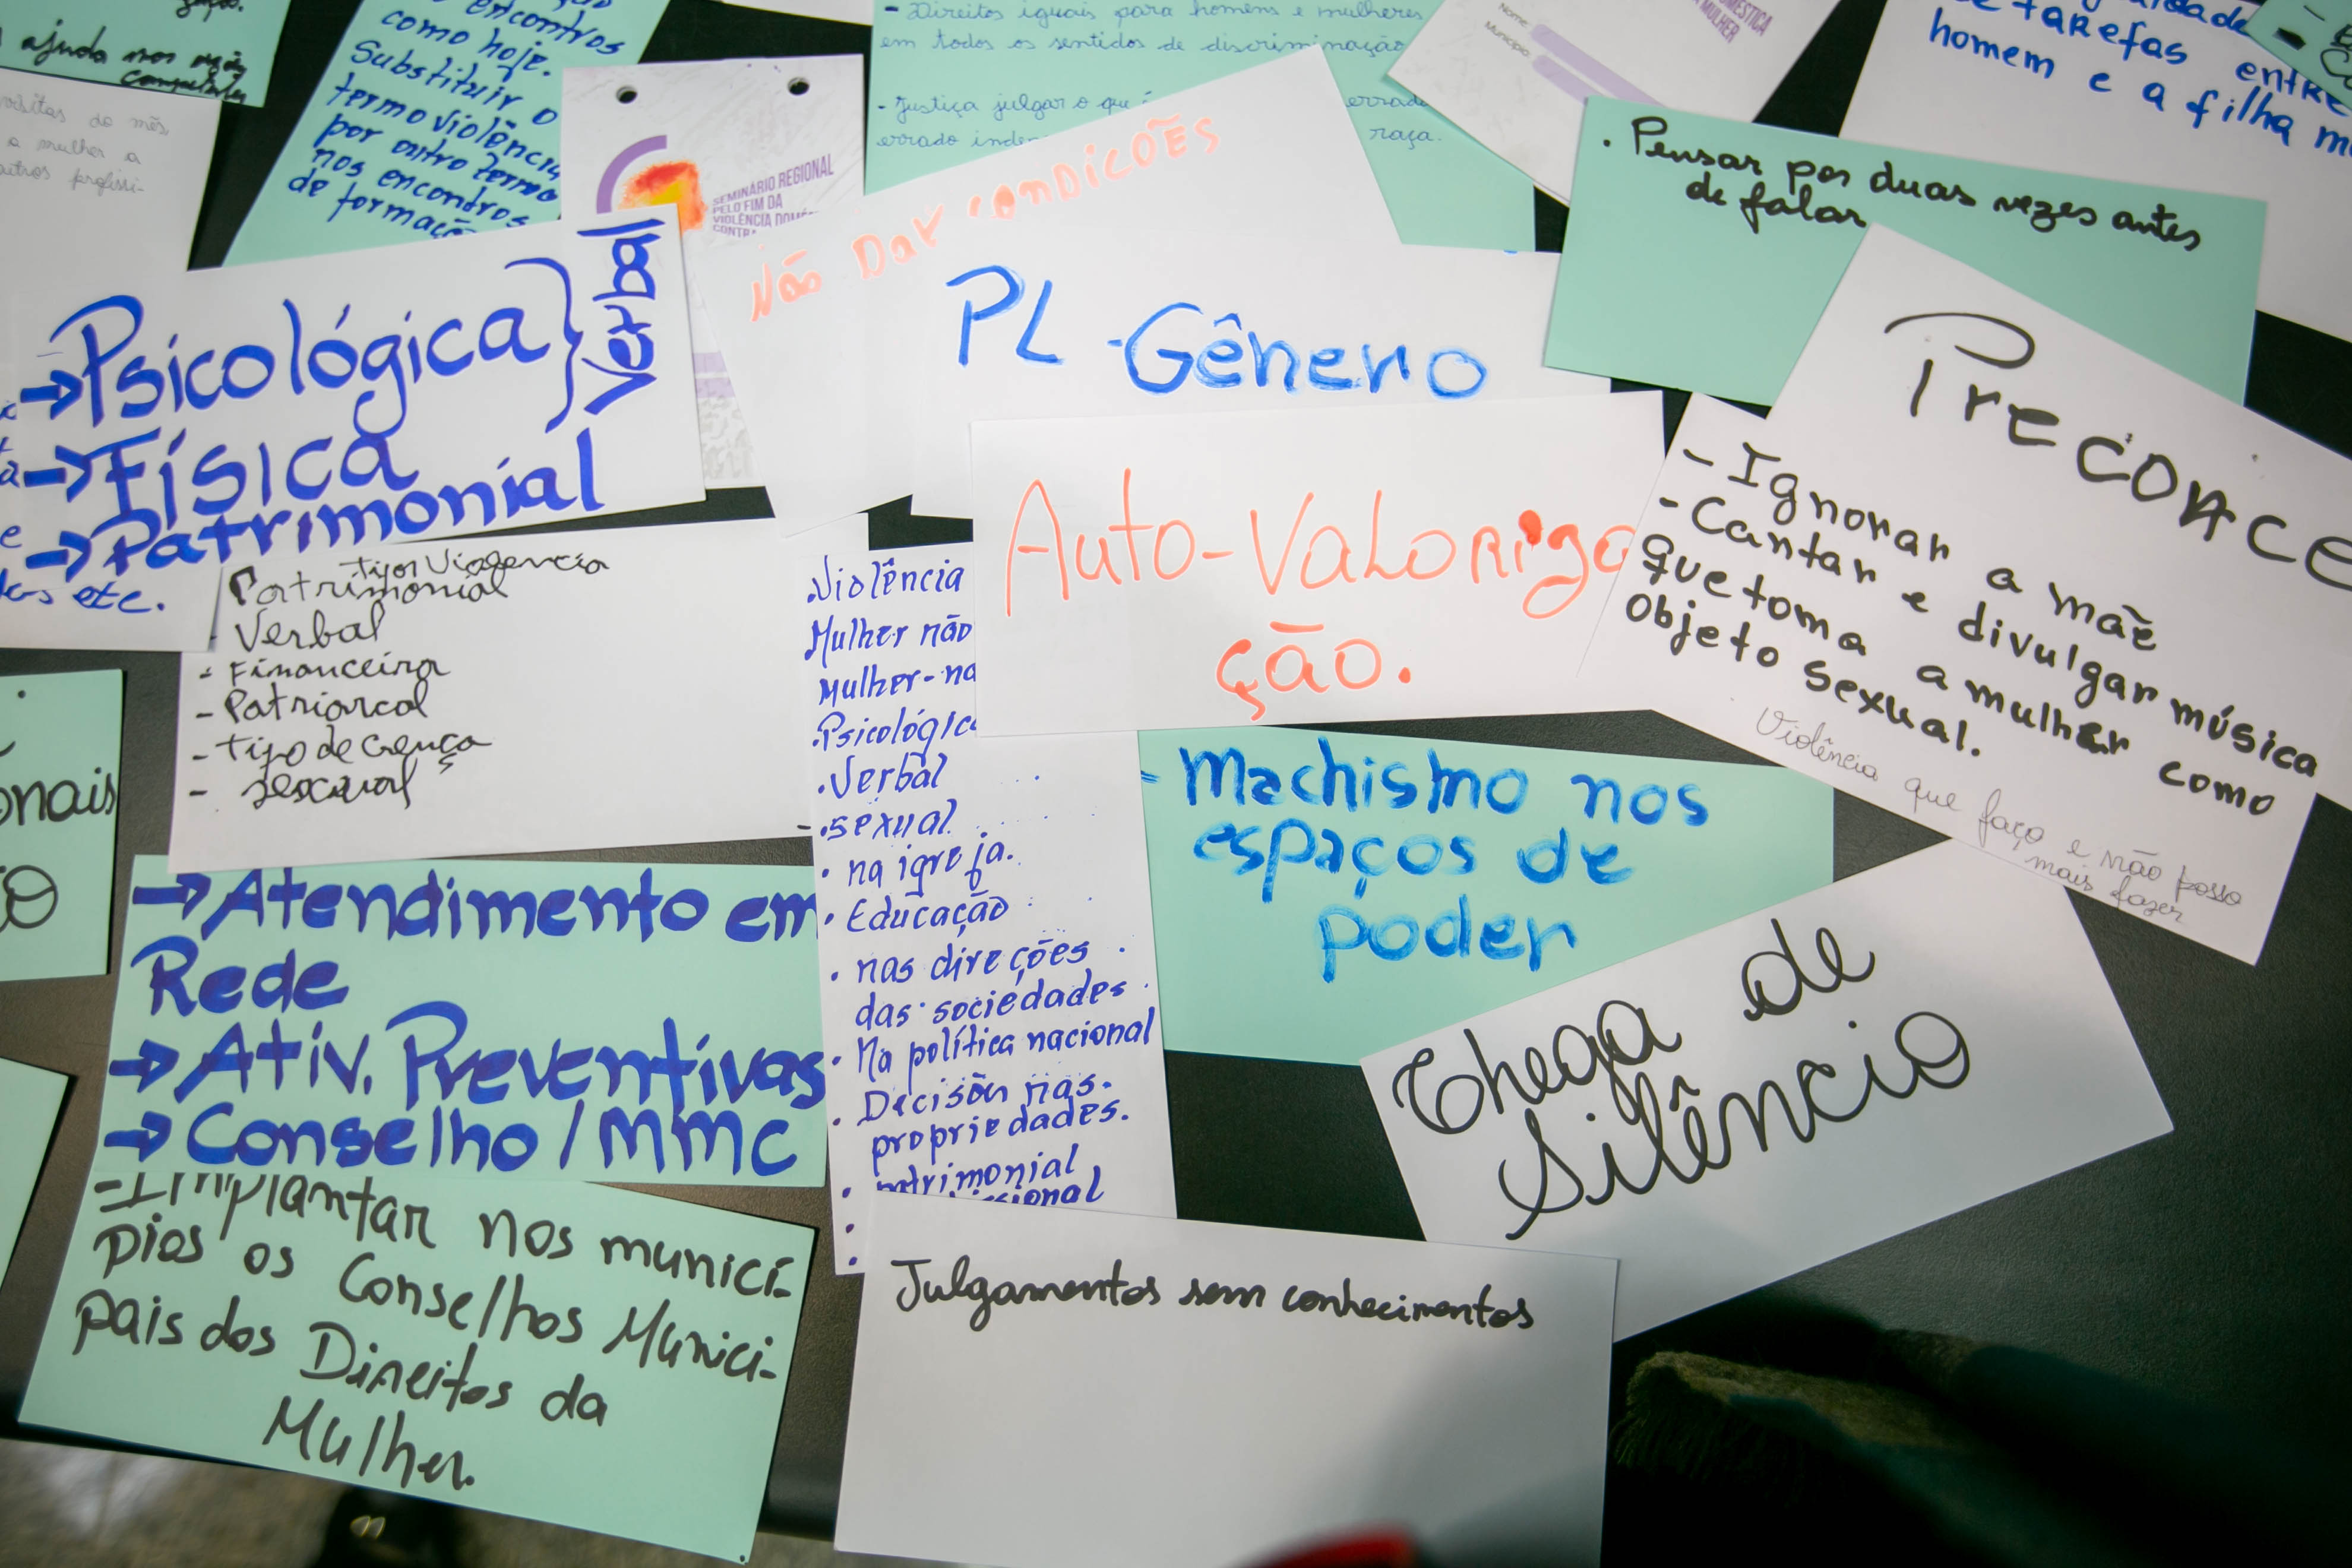 ajuda nos
encontros
como hoje.
Substituir o
termo violência
por outro termo
nos encontros
de formaçã
visitas do mês
a mulher a
outros profissi-
SEMINÁRIO REGIONAL
PELO FIM DA
VIOLÊNCIA DOMÉS
CONTRA
- Direitos iguais para homens e mulheres
em todos os sentidos de discriminação
- Justiça julgar o que
errado
errado inde
raça.
Nome:
Município:
DOMÉSTICA
MULHER
tarefas entre
homem e a filha m
. Pensar por duas vezes antes
de falar
Não Dar condições
PL - Gênero
→ Psicológica
→ Física
→ Patrimonial
Verbal
etc.
Auto-Valoriza
ção.
Preconce
- Ignorar a mãe
- Cantar e divulgar música
que toma a mulher como
objeto sexual.
Violência que faço e não posso
mais fazer
tipos Violencia
Patrimonial
- Verbal
- Financeira
- Patriarcal
- tipo de Crença
- sexual
.Violência
Mulher não
Mulher-na
.Psicológica
.Verbal
- .sexual.
. na igreja.
. Educação
. nas direções
das sociedades
. Na política nacional
. Decisão nas
propriedades.
. patrimonial
- Machismo nos
espaços de
poder
Chega de
Silêncio
onais
→ Atendimento em
Rede
→ Ativ. Preventivas
→ Conselho / MMC
- Implantar nos municí-
pios os Conselhos Munici-
pais dos Direitos da
Mulher.
Julgamentos sem conhecimentos